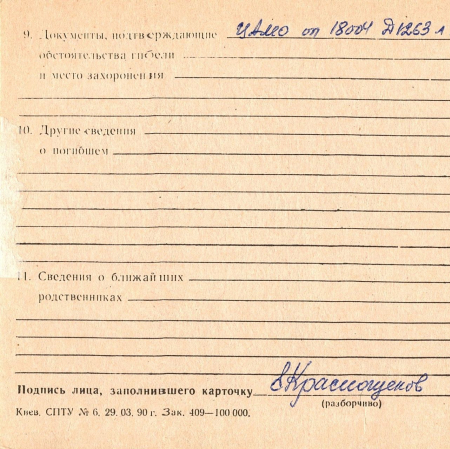 9. Документы, подтверждающие ЦАМО оп 18004 Д1263 л
обстоятельства гибели
и место захоронения
10. Другие сведения
о погибшем
11. Сведения о ближайших
родственниках
Подпись лица, заполнившего карточку Краснощеков
(разборчиво)
Киев. СПТУ № 6. 29. 03. 90 г. Зак. 409—100 000.